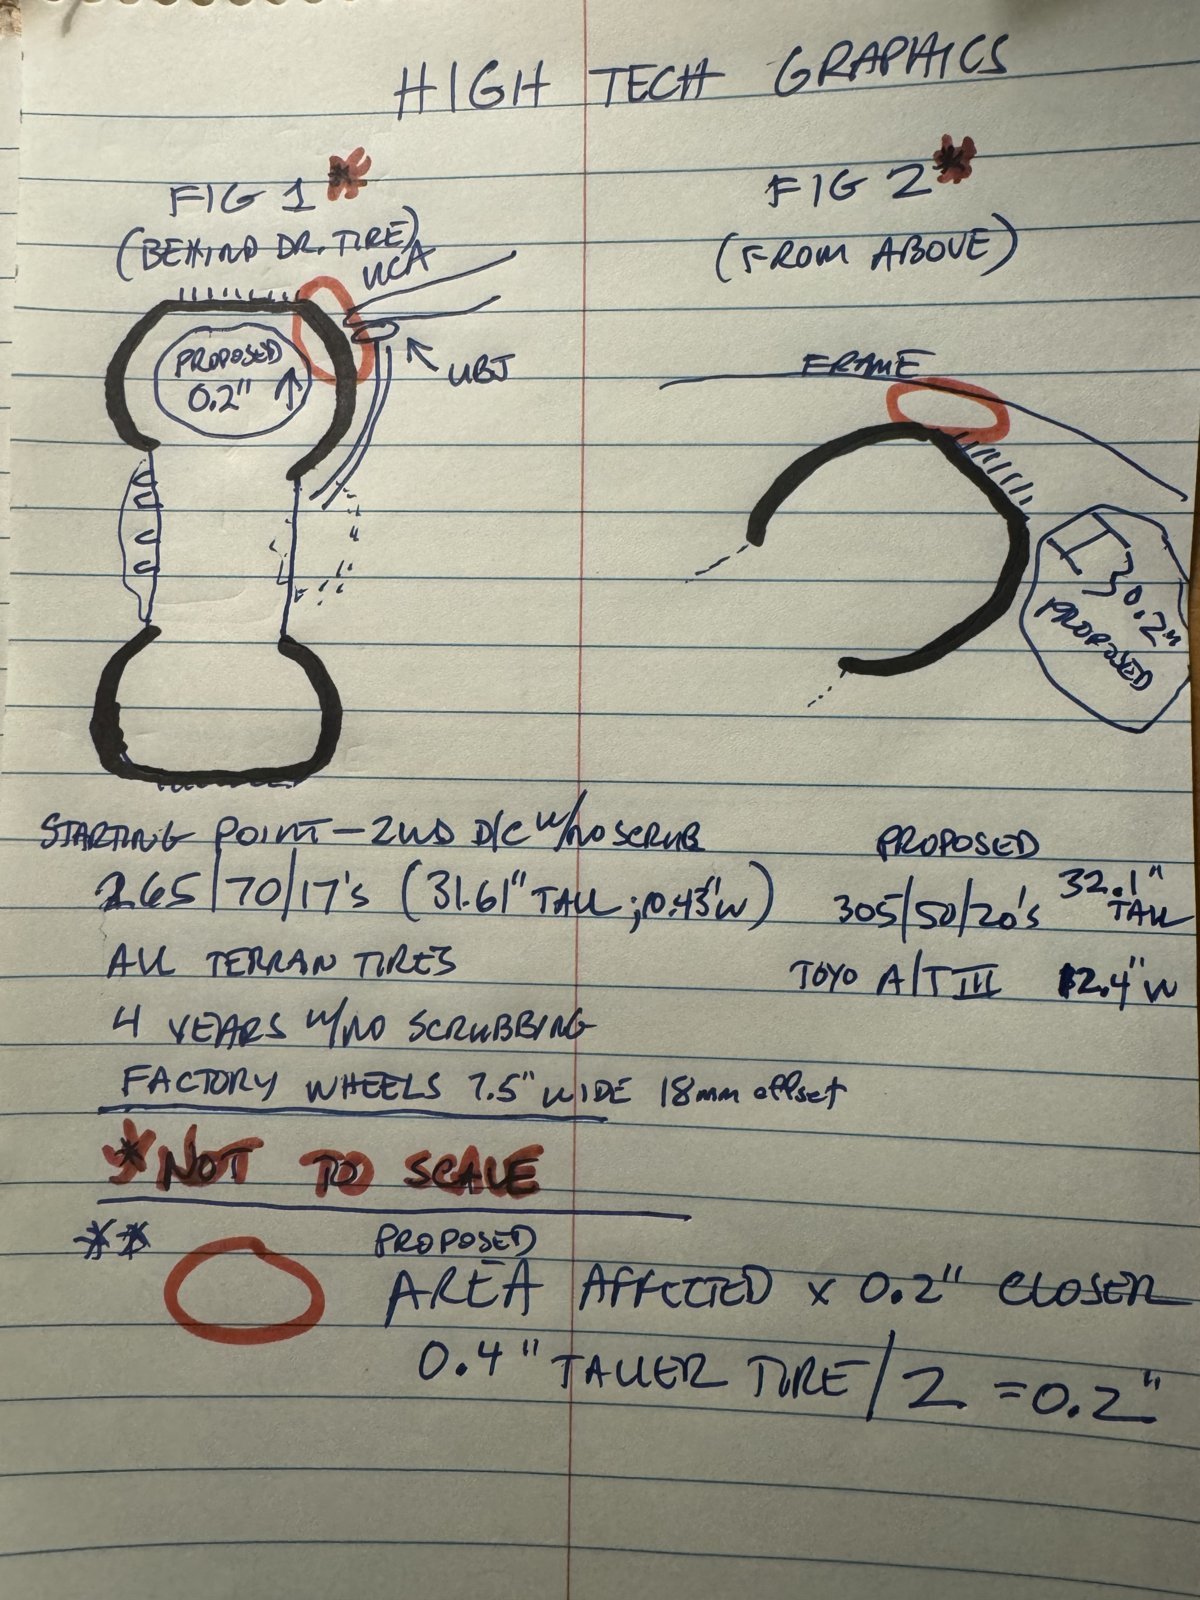 HIGH TECH GRAPHICS
FIG 1*
(BEHIND DR. TIRE)
UCA
UBJ
PROPOSED
0.2" ↑
FIG 2*
(FROM ABOVE)
FRAME
0.2"
PROPOSED
STARTING POINT - 2ND D/C W/NO SCRUB
265/70/17's (31.61" TALL; 10.43" W)
ALL TERRAN TIRES
4 YEARS W/NO SCRUBBING
FACTORY WHEELS 7.5" WIDE 18mm offset
PROPOSED
305/50/20's 32.1" TALL
TOYO A/T III 12.4" W
*NOT TO SCALE
**
PROPOSED
AREA AFFECTED x 0.2" CLOSER
0.4" TALLER TIRE/2 = 0.2"